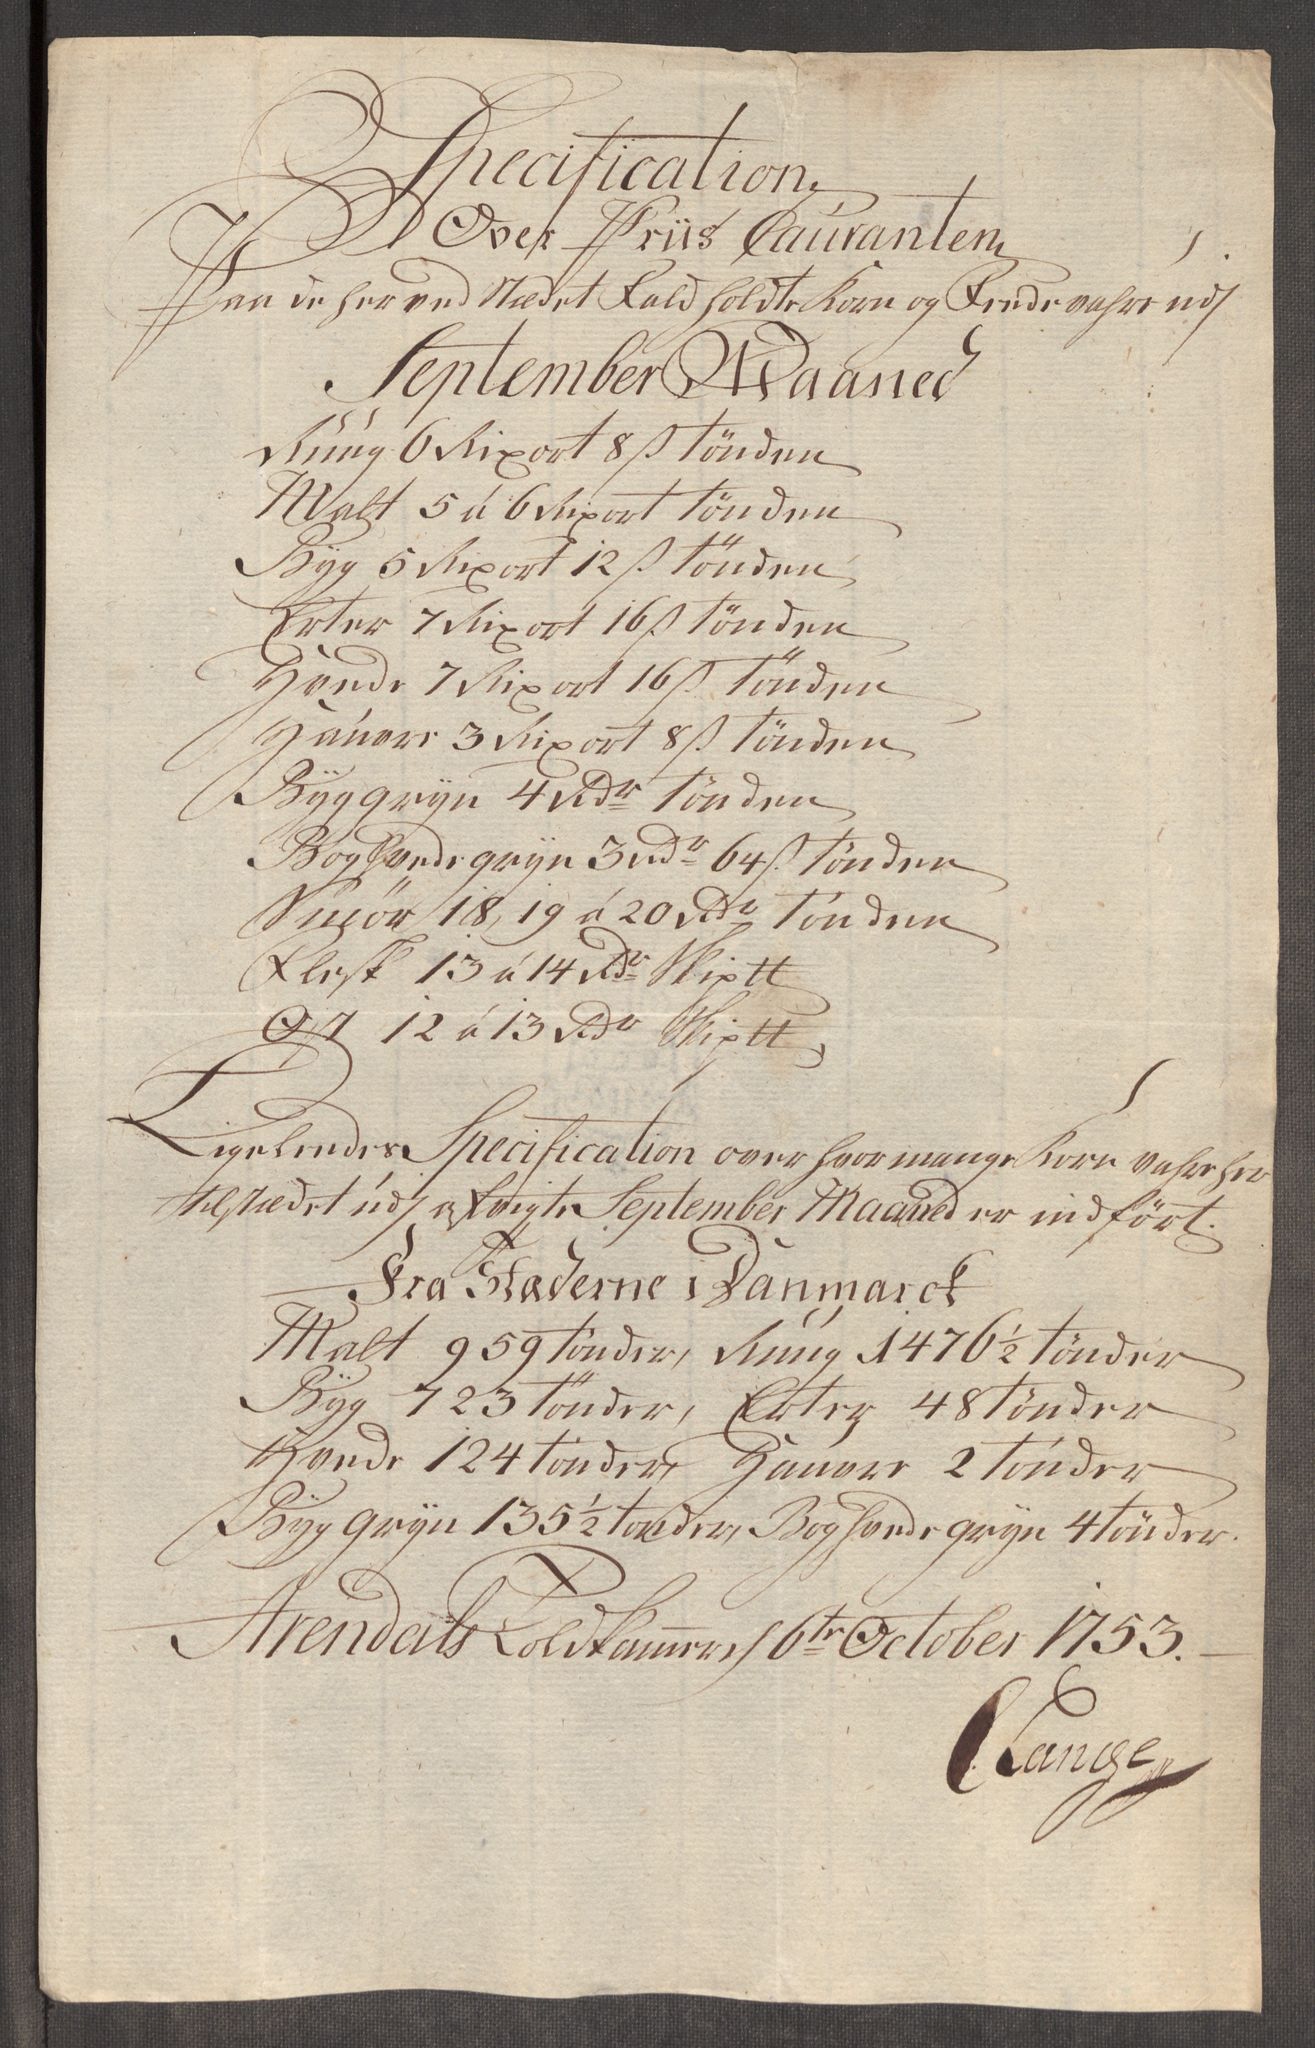 Specification
Over Priis Cauranten
Paa de her ved Stædet Fald holdte Korn og Fede vahre udj
September Maaned
Rúúg 6 Rixort 8 ß tönden
Malt 5 á 6 Rixort tönden
Byg 5 Rixort 12 ß tönden
Erter 7 Rixort 16 ß tönden
Hvede 7 Rixort 16 ß tönden
Haúvre 3 Rixort 8 ß tönden
Byggryn 4 Rdr tönden
Boghvedegryn 3 Rdr 64 ß tönden
Smör 18, 19 á 20 Rdr tönden
Flesk 13 á 14 Rdr Skiptt
Ost 12 á 13 Rdr Skiptt
Ligeleedes Specification over hvor mange Korn vahre her
til stædet údj afvigte September Maaned er indfört.
Fra Stæderne i Danmarck
Malt 959 tönder, Rúúg 1476 1/2 tönder
Byg 723 tönder, Erter 48 tönder
Hvede 124 tönder, Haúvre 2 tönder
Byg gryn 135 1/2 tønder, Boghvede gryn 4 tönder.
Arendals Toldkammer 6te October 1753.
C Lange